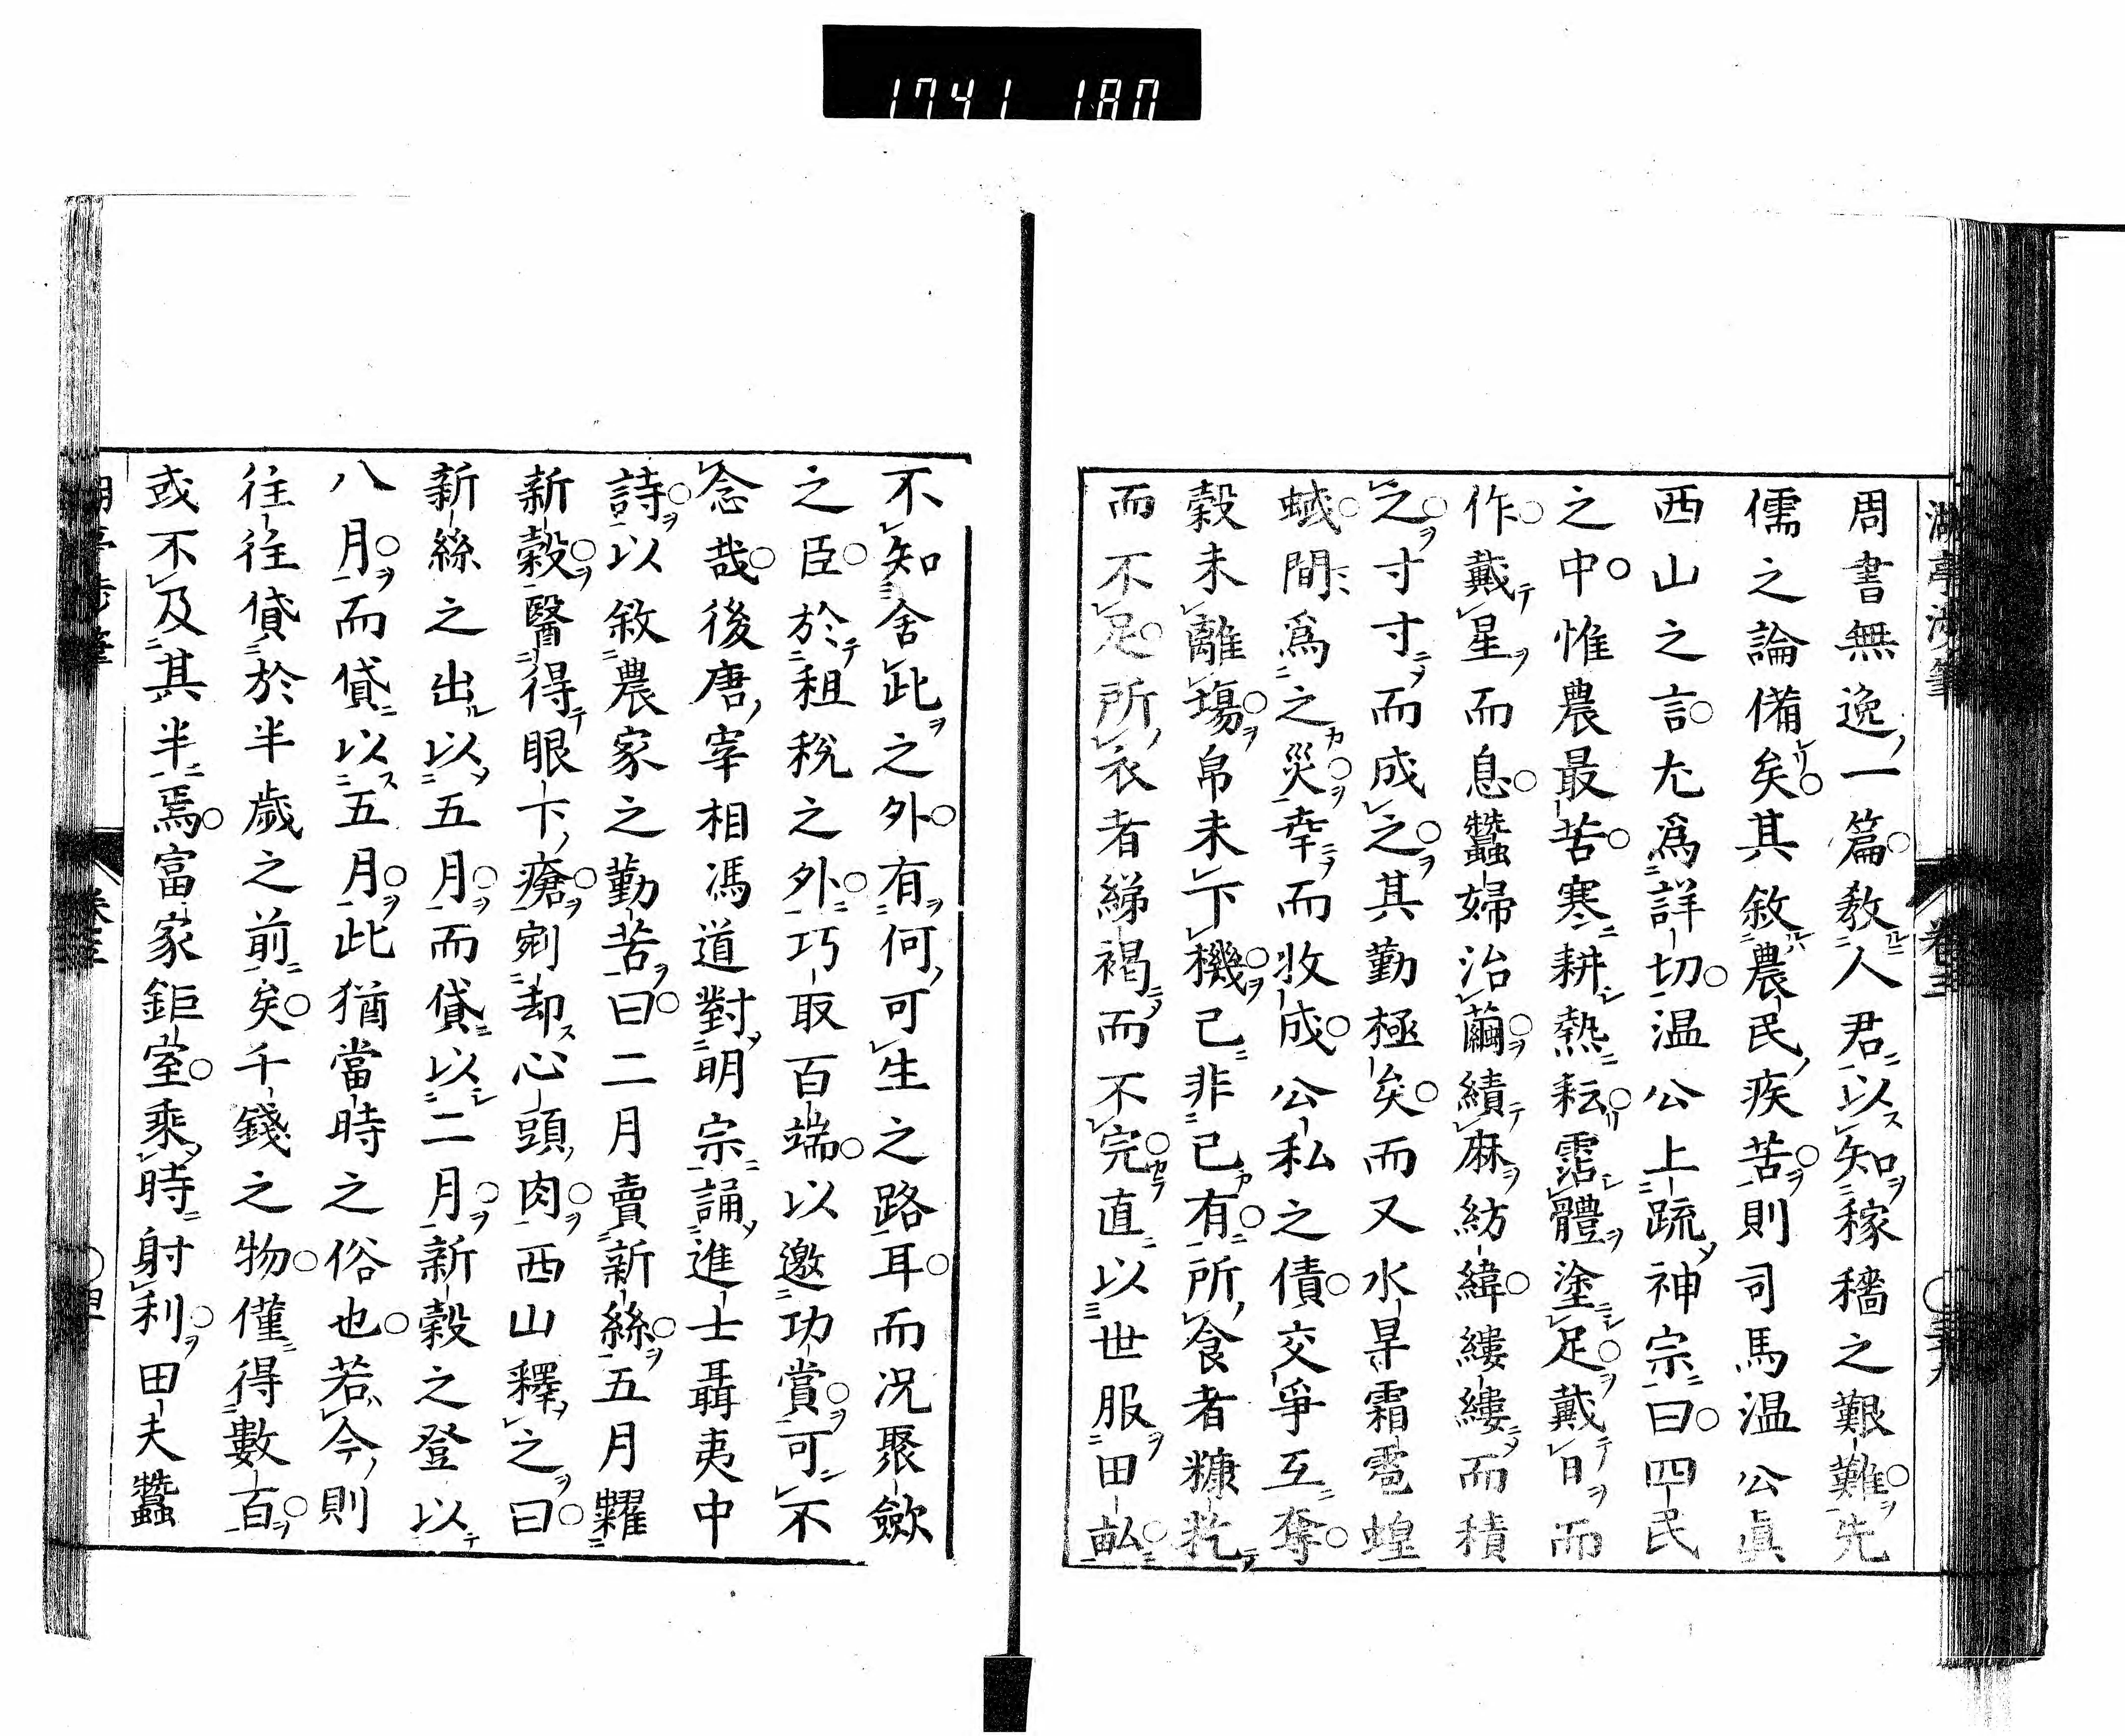 1741 180
周書無逸一篇教人君以知稼穡之艱難先
儒之論備矣其敘農民疾苦則司馬温公眞
西山之言尤爲詳切温公上疏神宗曰四民
之中惟農最苦寒耕熱耘霑體塗足戴日而
作戴星而息蠶婦治繭績麻紡緯縷縷而積
之寸寸而成之其勤極矣而又水旱霜雹蝗
蜮間爲之災幸而收成公私之債交爭互奪
穀未離場帛未下機已非己有所食者糠籺
而不足所衣者綈褐而不完直以世服田畝
不知舍此之外有何可生之路耳而況聚歛
之臣於租稅之外巧取百端以邀功賞可不
念哉後唐宰相馮道對明宗誦進士聶夷中
詩以敘農家之勤苦曰二月賣新絲五月糶
新穀醫得眼下瘡剜却心頭肉西山釋之曰
新絲之出以五月而貸以二月新穀之登以
八月而貸以五月此猶當時之俗也若今則
往往貸於半歲之前矣千錢之物僅得數百
或不及其半焉富家鉅室乘時射利田夫蠶
卷三